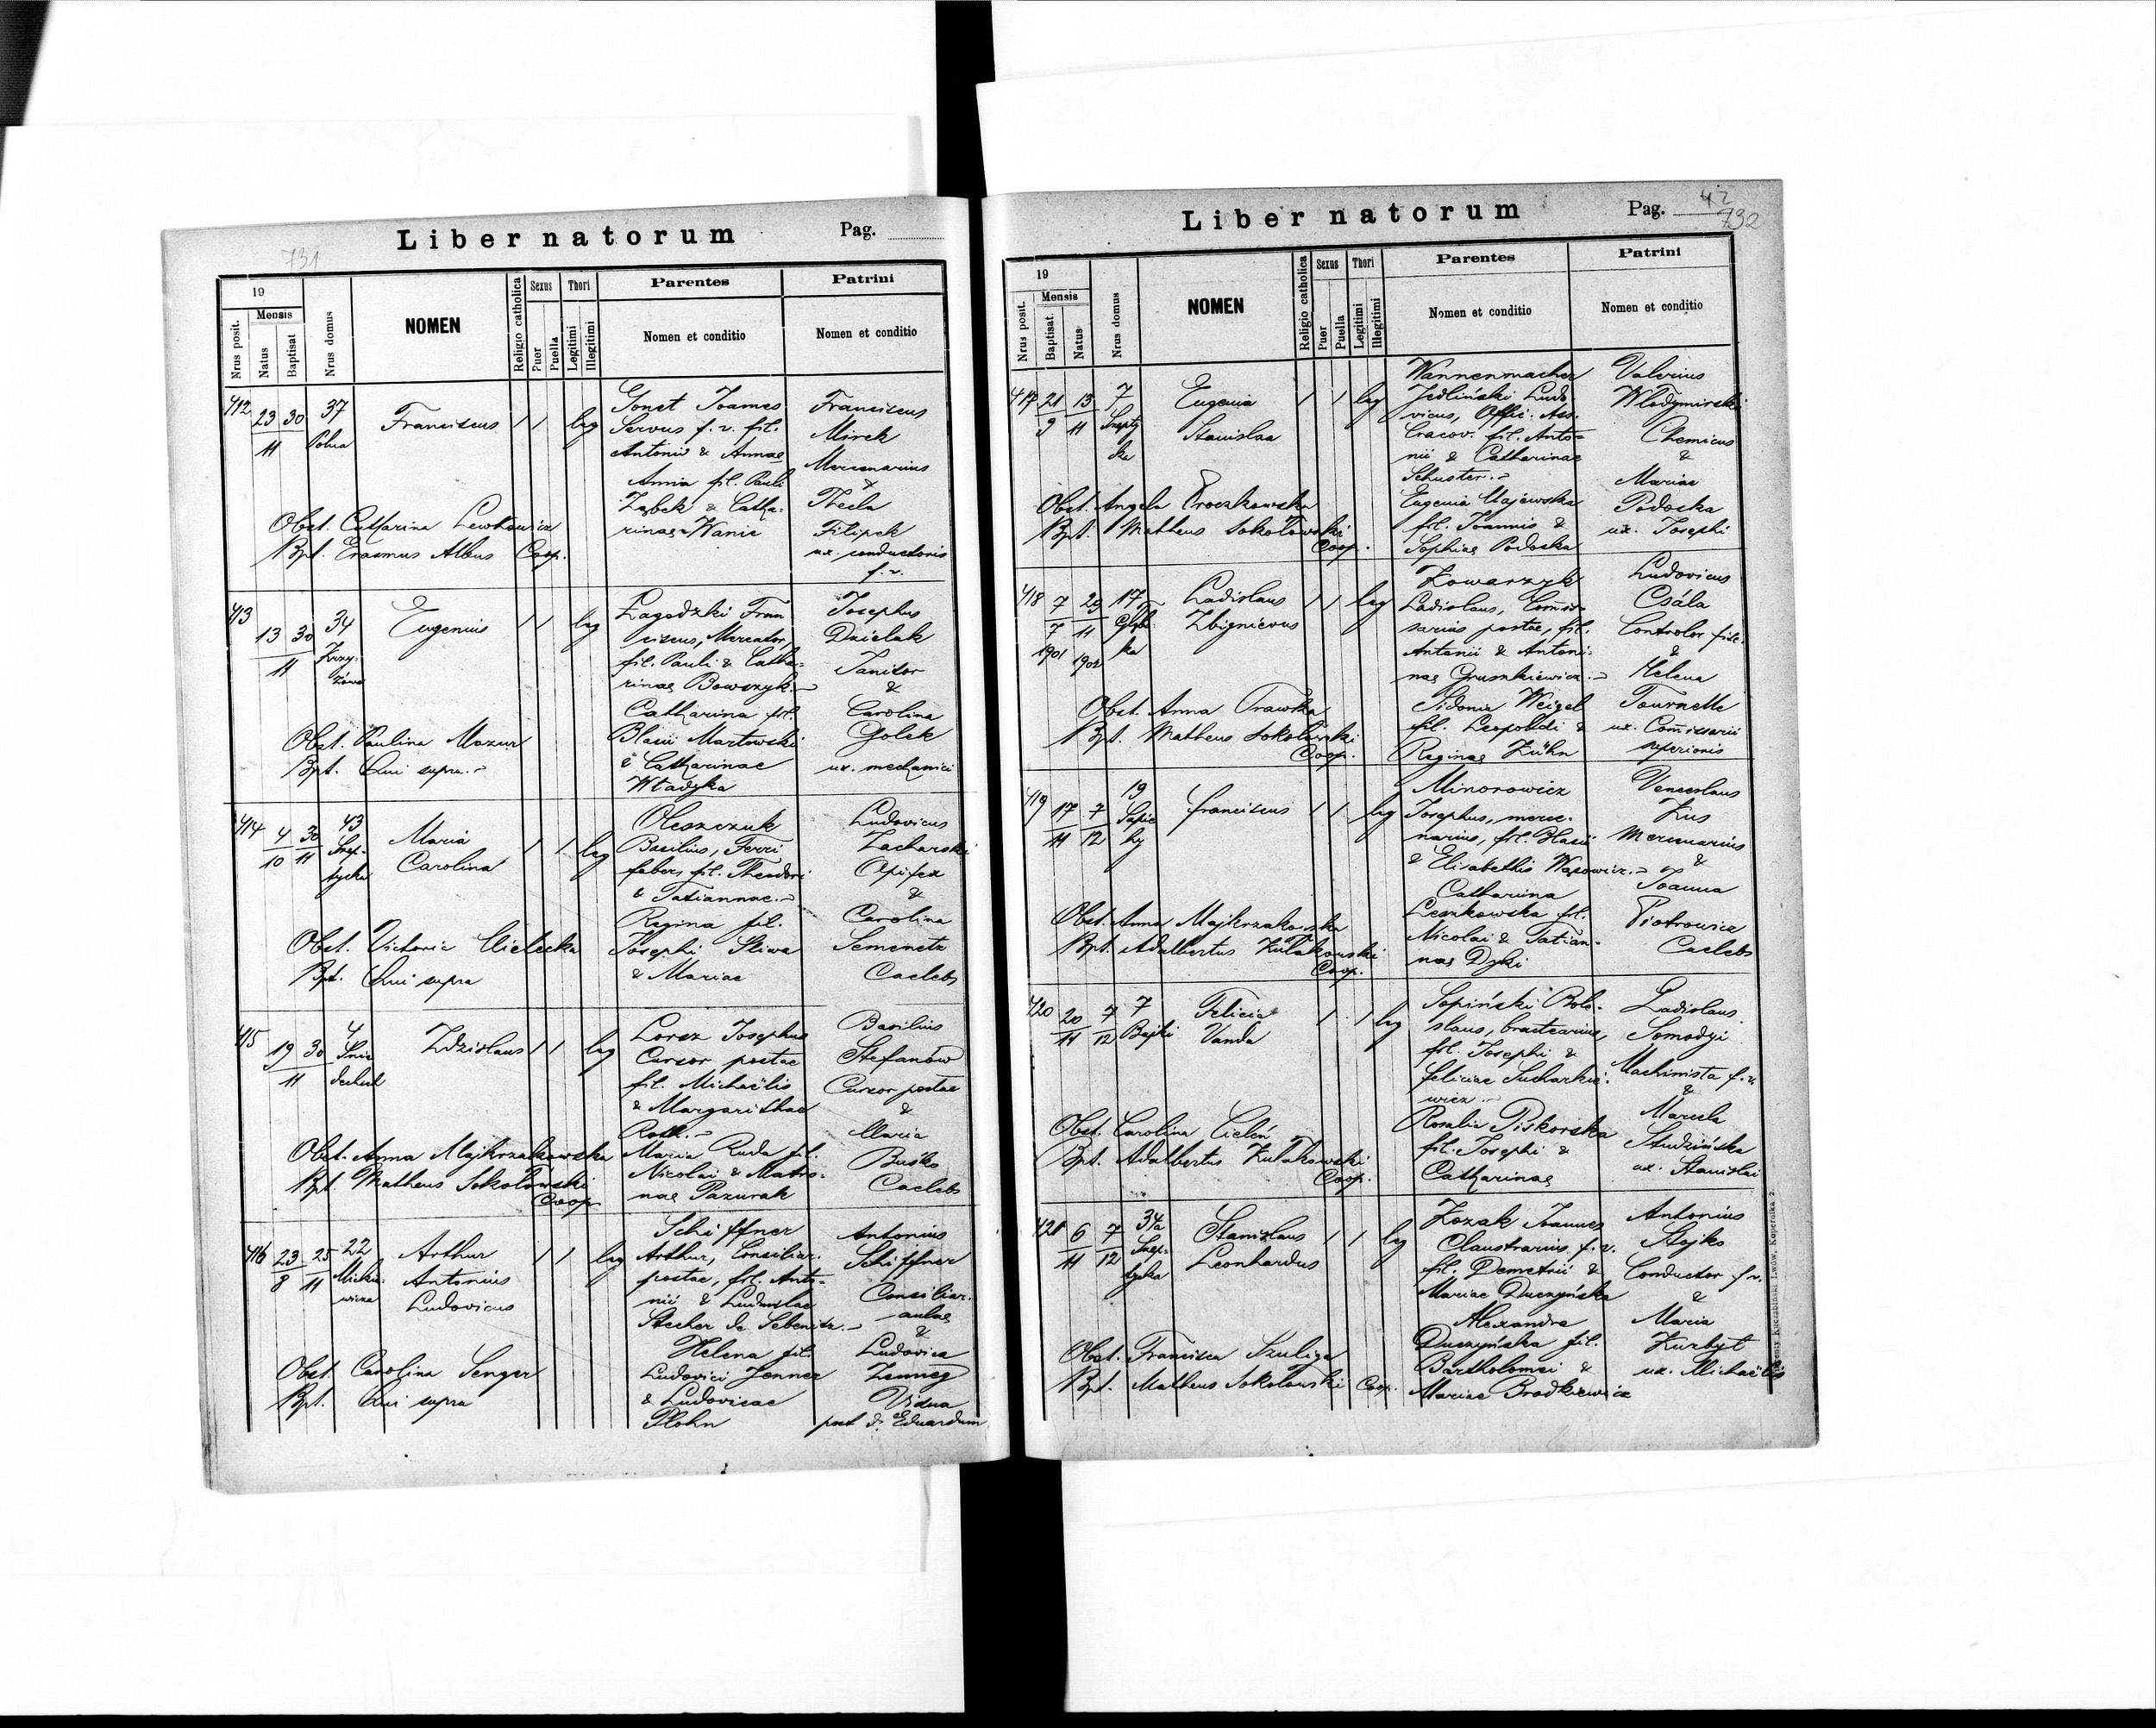 731
Liber natorum Pag.
19
Mensis
Nrus posit.
Natus
Baptisat
Nrus domus
NOMEN
Religio catholica
Sexus
Puer
Puella
Thori
Legitimi
Illegitimi
Parentes
Nomen et conditio
Patrini
Nomen et conditio
412 23 30 37 Franciscus 1 1 leg
11 Polna
Gonet Joannes
Servus f. v. fil.
Antonii & Annae
Anna fil. Pauli
Ząbek & Catha-
rinae Wanic
Franciscus
Mirek
Mercenarius
&
Thecla
Filipek
ux. conductoris
f. v.
Obst. Catharina Lewkowicz
Bpt. Erasmus Albus Coop.
413 13 30 34 Eugenius 1 1 leg
11
Łagodzki Fran
ciscus, Mercator,
fil. Pauli & Catha-
rinae Bowszyk.-
Catharina fil.
Blasii Martowski
& Catharinae
Władyka
Josephus
Dzielak
Janitor
&
Carolina
Golek
ux. mechanici
Obst. Paulina Mazur
Bpt. Qui supra.-
414 4 30 43 Maria 1 1 leg
10 11 Szep-
tycka
Carolina
Oleszczuk
Basilius, Ferri
faber, fil. Theodori
& Tatiannae.-
Regina fil.
Josephi Śliwa
& Mariae
Ludovicus
Zacharski
Opifex
&
Carolina
Semenetz
Caelebs
Obst. Victoria Mielecka
Bpt. Qui supra
415 19 30 4 Zdzislaus 1 1 leg
11 Śnia
deckich
Lorez Josephus
Cursor postae
fil. Michaëlis
& Margarithae
Roth.-
Maria Ruda fil.
Nicolai & Matro-
nae Pazurak
Basilius
Stefanów
Cursor postae
&
Maria
Buśko
Caelebs
Obst. Anna Majkrzakowska
Bpt. Matheus Sokołowski
Coop.
416 23 25 22 Arthur 1 1 leg
8 11 Mickie-
wicza
Antonius
Ludovicus
Schiffner
Arthur, Consiliar.
postae, fil. Anto-
nii & Ludmilae
Stecher de Sebenitz.-
Helena fil.
Ludovici Jenner
& Ludovicae
Plohn
Antonius
Schiffner
Consiliar.
aulae
&
Ludovica
Vidua
post d. Eduardum
Obst. Carolina Senger
Bpt. Qui supra
Liber natorum Pag. 42
732
19
Mensis
Nrus posit.
Baptisat.
Natus
Nrus domus
NOMEN
Religio catholica
Sexus
Puer
Puella
Thori
Legitimi
Illegitimi
Parentes
Nomen et conditio
Patrini
Nomen et conditio
417 21 13 7 Eugenia 1 1 leg
9 11 Szepty
cka
Stanislaa
Wannenmacher
Jedliński Ludo
vicus, Offic. Ass.
Cracov. fil. Anto-
nii & Catharinae
Schuster.-
Eugenia Majewska
fil. Joannis &
Sophiae Podoska
Valerius
Włodymirski
Chemicus
&
Mariae
Podoska
ux. Josephi
Obst. Angela Proczkowska
Bpt. Matheus Sokołowski
Coop.
418 7 29 17 Ladislaus 1 1 leg
7 11
1901 1902
Zbignievus
Kowarzyk
Ladislaus, Commis-
sarius postae, fil.
Antonii & Antoni-
nae Gruszkiewicz.-
Sidonia Weigel
fil. Leopoldi &
Reginae Kühn
Ludovicus
Csála
Controlor
&
Helena
Tournelle
ux. Commissarii
Obst. Anna Trawska
Bpt. Matheus Sokołowski
Coop.
419 17 7 19 Franciscus 1 1 leg
11 12 Sapie
hy
Minorowicz
Josephus, merce-
narius, fil. Blasii
& Elisabethis Wąsowicz.-
Catharina
Leszkowska fil.
Nicolai & Tatian-
nae Dyki
Venceslaus
Kus
Mercenarius
&
Joanna
Piotrowicz
Caelebs
Obst. Anna Majkrzakowska
Bpt. Adalbertus Kułakowski
Coop.
420 20 7 7 Felicia 1 1 leg
11 12 Bajki
Vanda
Sopiński Bole-
slaus, bractearius,
fil. Josephi &
Feliciae Sucharkie-
wicz.-
Rosalia Piskorska
fil. Josephi &
Catharinae
Ladislaus
Somodyi
Machinista f. v.
&
Marcela
Studzińska
ux. Stanislai
Obst. Carolina Cieleń
Bpt. Adalbertus Kułakowski
Coop.
421 6 7 34a Stanislaus 1 1 leg
11 12 Szep-
tycka
Leonhardus
Kozak Joannes
Claustrarius f. v.
fil. Demetrii &
Mariae Duczyńska
Alexandra
Duszyńska fil.
Bartholomei &
Mariae Brodkiewicz
Antonius
Stojko
Conductor f. v.
&
Maria
Kurbyt
ux. Michaëlis
Obst. Francisca Szuliga
Bpt. Matheus Sokołowski Coop.
Kuczabiński Lwów, Kopernika 2.